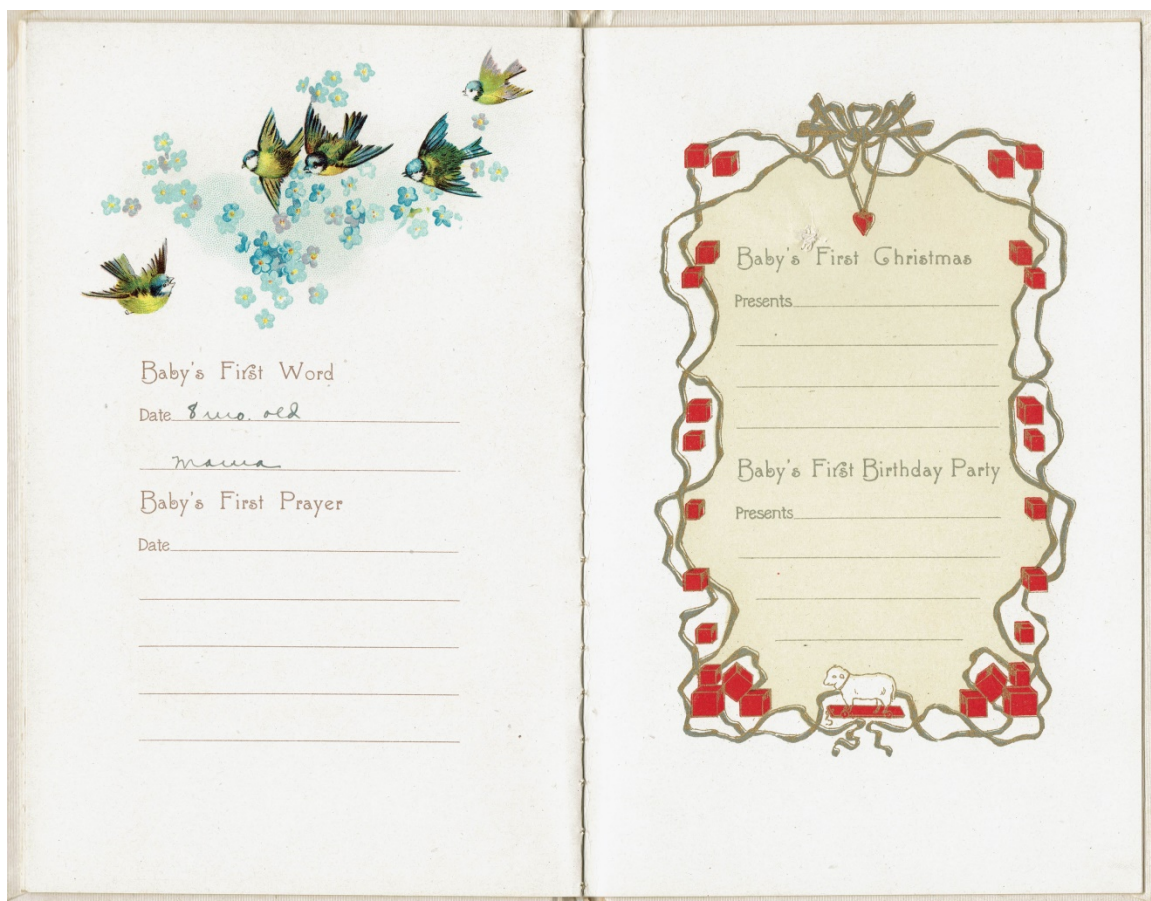 Baby's First Word
Date 8 mo. old
mama
Baby's First Prayer
Date
Baby's First Christmas
Presents
Baby's First Birthday Party
Presents